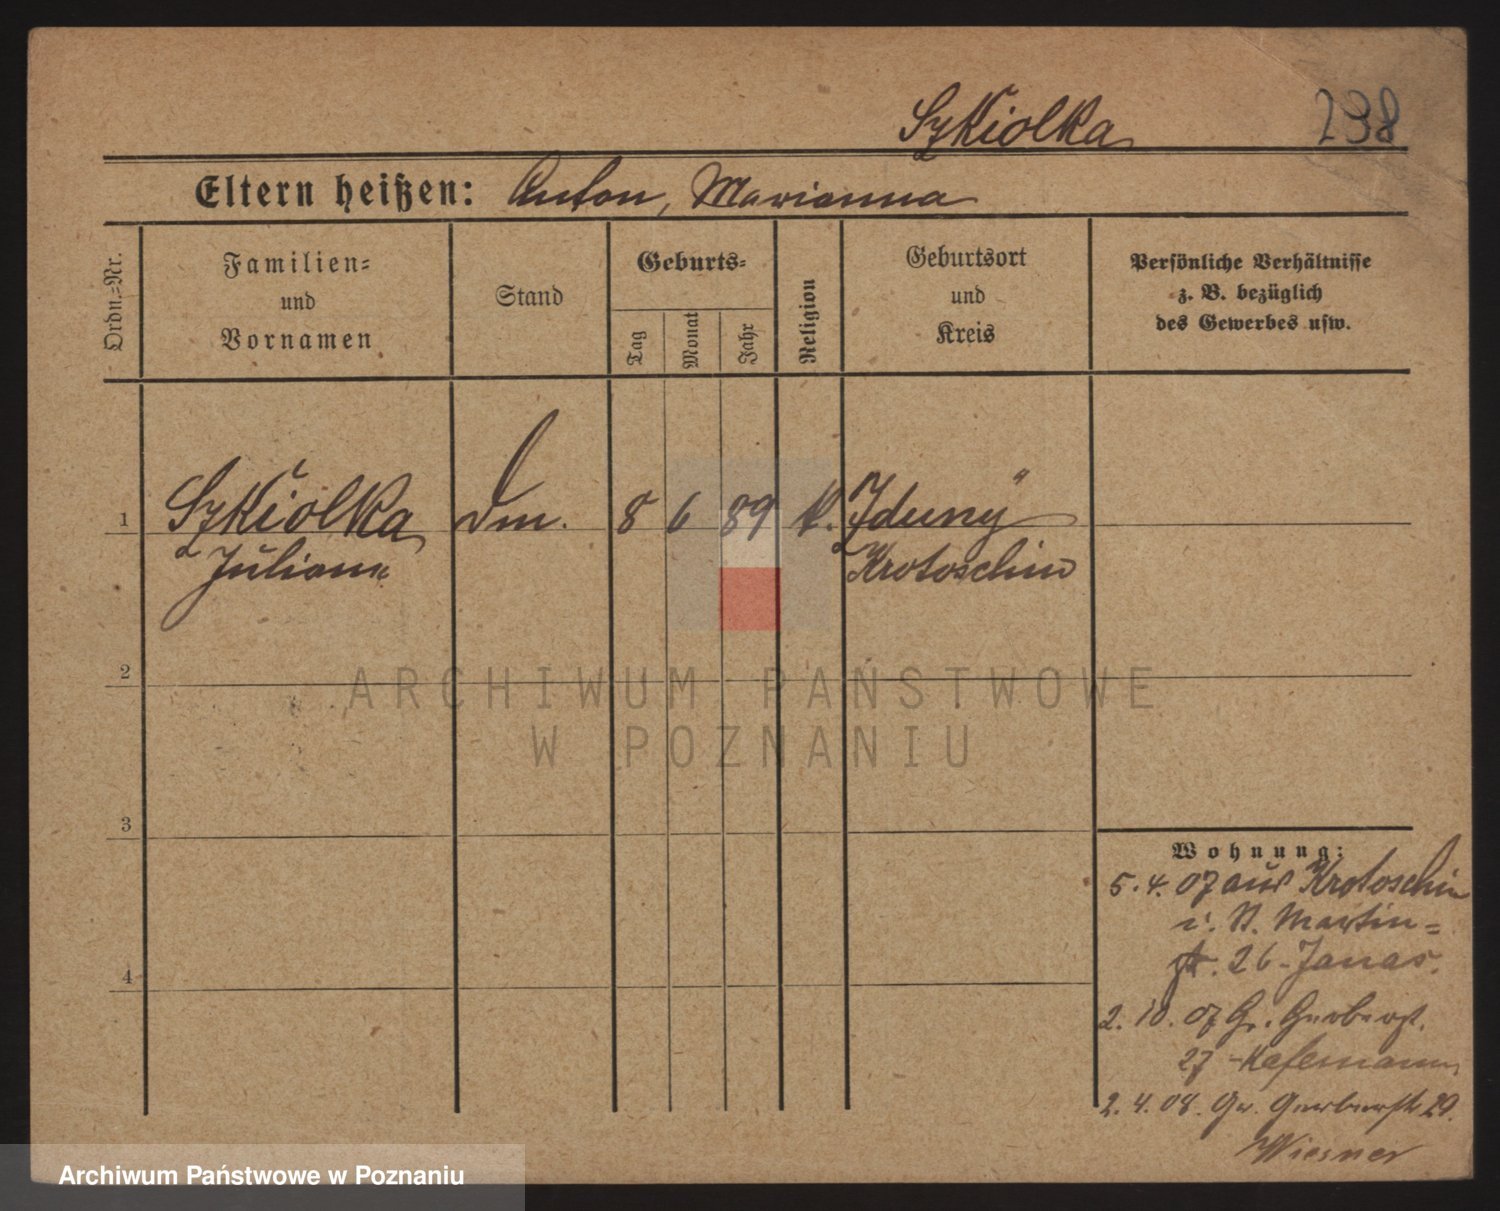 Szkiolka
238
Eltern heißen: Anton, Marianna
Ordn.=Nr.
Familien=
und
Vornamen
Stand
Geburts=
Tag
Monat
Jahr
Religion
Geburtsort
und
Kreis
Persönliche Verhältnisse
z. B. bezüglich
des Gewerbes usw.
1 Szkiolka 8 6 89 k. Zduny
Krotoschin
2
3
4
ARCHIWUM PAŃSTWOWE
W POZNANIU
Wohnung:
5.4.07 aus Krotoschin
i. St. Martin=
str. 26 - Janas.
2.10.07 Gr. Gerberst.
27
2.4.08. Gr. Gerberstr 29.
Wiesner
Archiwum Państwowe w Poznaniu